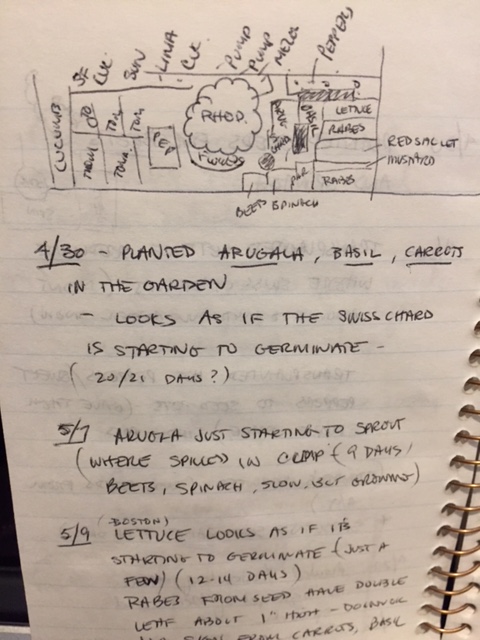 CUC
SUN
LUNA
CUC
PUMP
PUMP
MELON
PEPPERS
CUCUMBS
TOM
TOM
TOM
TOM
RHOD.
FLOWERS
LETTUCE
RABES
REDSAC LET
MUSTARD
RABES
BEETS SPINACH
4/30 - PLANTED ARUGALA, BASIL, CARROTS
IN THE GARDEN
- LOOKS AS IF THE SWISS CHARD
IS STARTING TO GERMINATE -
(20/21 DAYS?)
5/7 ARUGLA JUST STARTING TO SPROUT
(WHERE SPILLED IN CLUMP (9 DAYS)
BEETS, SPINACH, SLOW, BUT GROWING)
(BOSTON)
5/9 LETTUCE LOOKS AS IF IT'S
STARTING TO GERMINATE (JUST A
FEW) (12-14 DAYS)
RABES FROM SEED HAVE DOUBLE
LEAF ABOUT 1" HIGH -
SIGN FROM CARROTS, BASIL